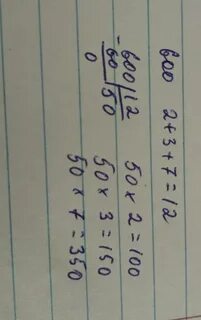 600 2+3+7=12
-600|12
60 |50
0
50 × 2 = 100
50 × 3 = 150
50 × 7 = 350